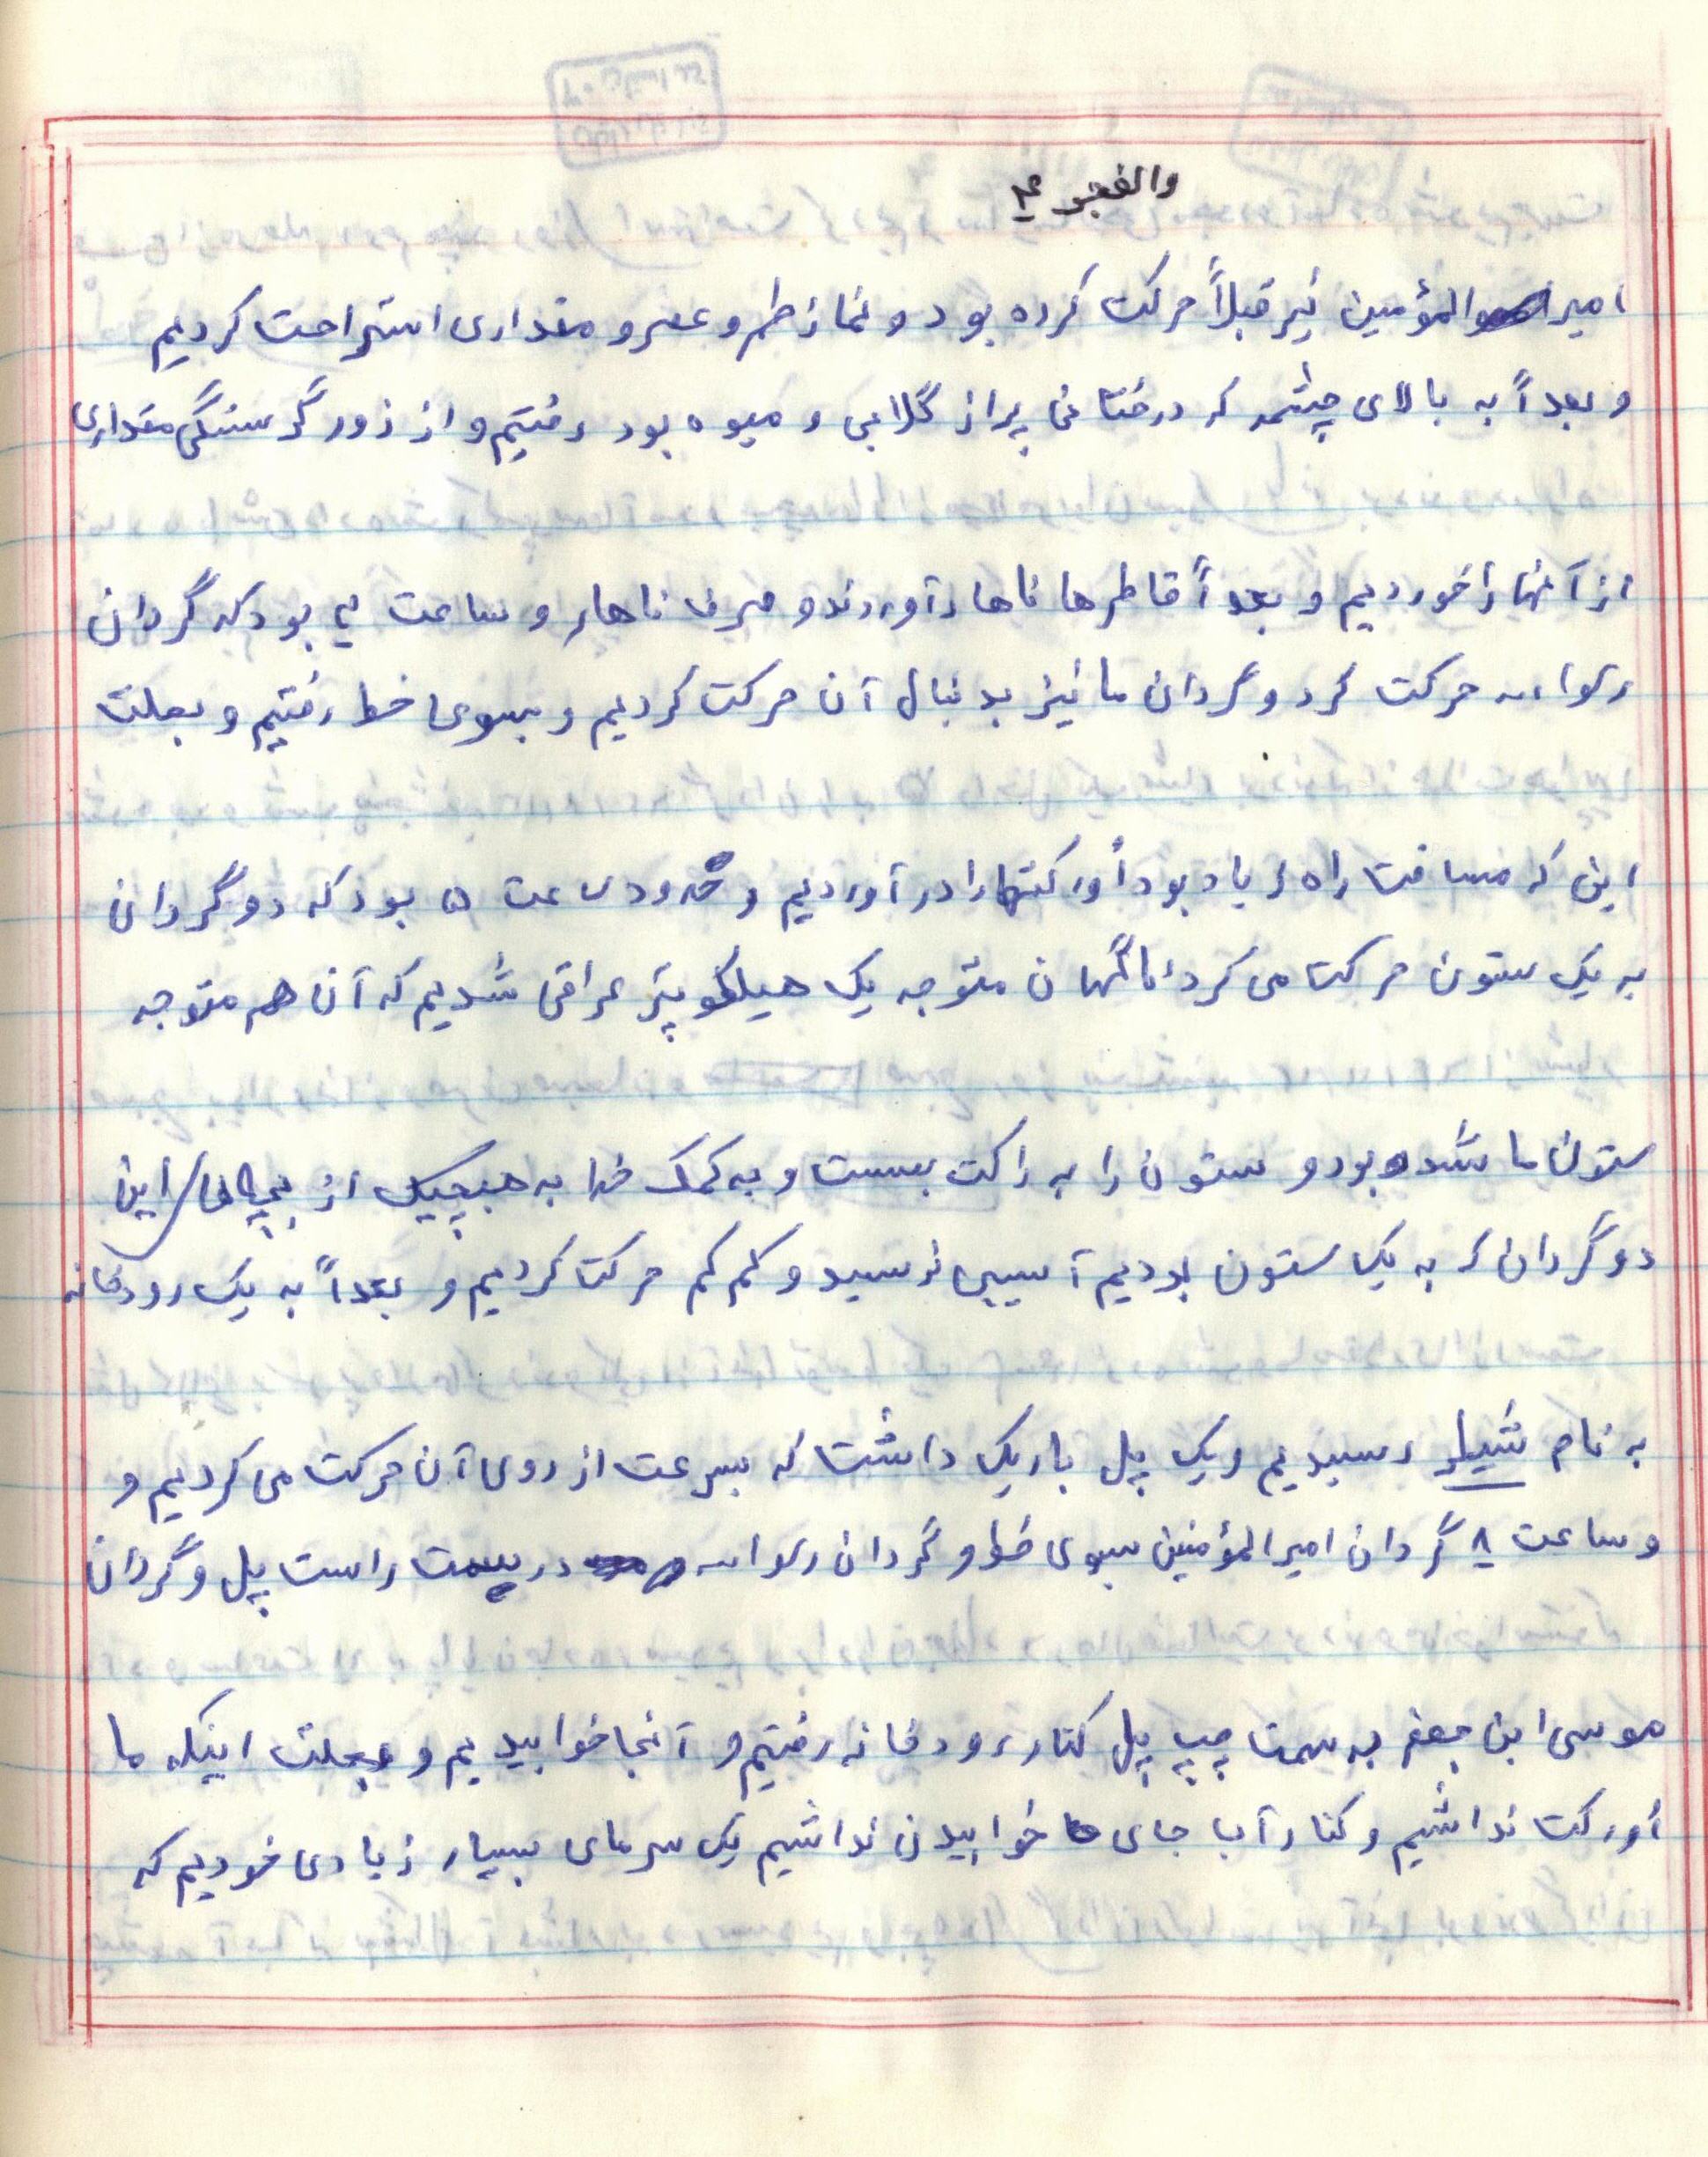 والفجر ۴
امیرالمؤمنین نیز قبلاً حرکت کرده بود و نماز ظهر و عصر و مقداری استراحت کردیم
و بعداً به بالای چشمه که درختانی پر از گلابی و میوه بود رفتیم و از زور گرسنگی مقداری
از آنها را خوردیم و بعداً قاطرها ناهار آوردند و صرف ناهار و ساعت ۴ بود که گردان
رسول الله حرکت کرد و گردان ما نیز بدنبال آن حرکت کردیم و بسوی خط رفتیم و بعلت
این که مسافت راه زیاد بود اُورکتها را در آوردیم و حدود ساعت ۵ بود که دو گردان
به یک ستون حرکت می کرد ناگهان متوجه یک هیلکوپتر عراقی شدیم که آن هم متوجه
ستون ما شده بود و ستون را به راکت بست و به کمک خدا به هیچیک از بچه های این
دو گردان که به یک ستون بودیم آسیبی نرسید و کم کم حرکت کردیم و بعداً به یک رودخانه
به نام شیلر رسیدیم و یک پل باریک داشت که بسرعت از روی آن حرکت می کردیم و
و ساعت ۸ گردان امیرالمؤمنین بسوی خط و گردان رسول الله در سمت راست پل و گردان
موسی ابن جعفر به سمت چپ پل کنار رودخانه رفتیم و آنجا خوابیدیم و بعلت اینکه ما
اُورکت نداشیم و کنار آب جای خوابیدن نداشیم یک سرمای بسیار زیادی خوردیم که